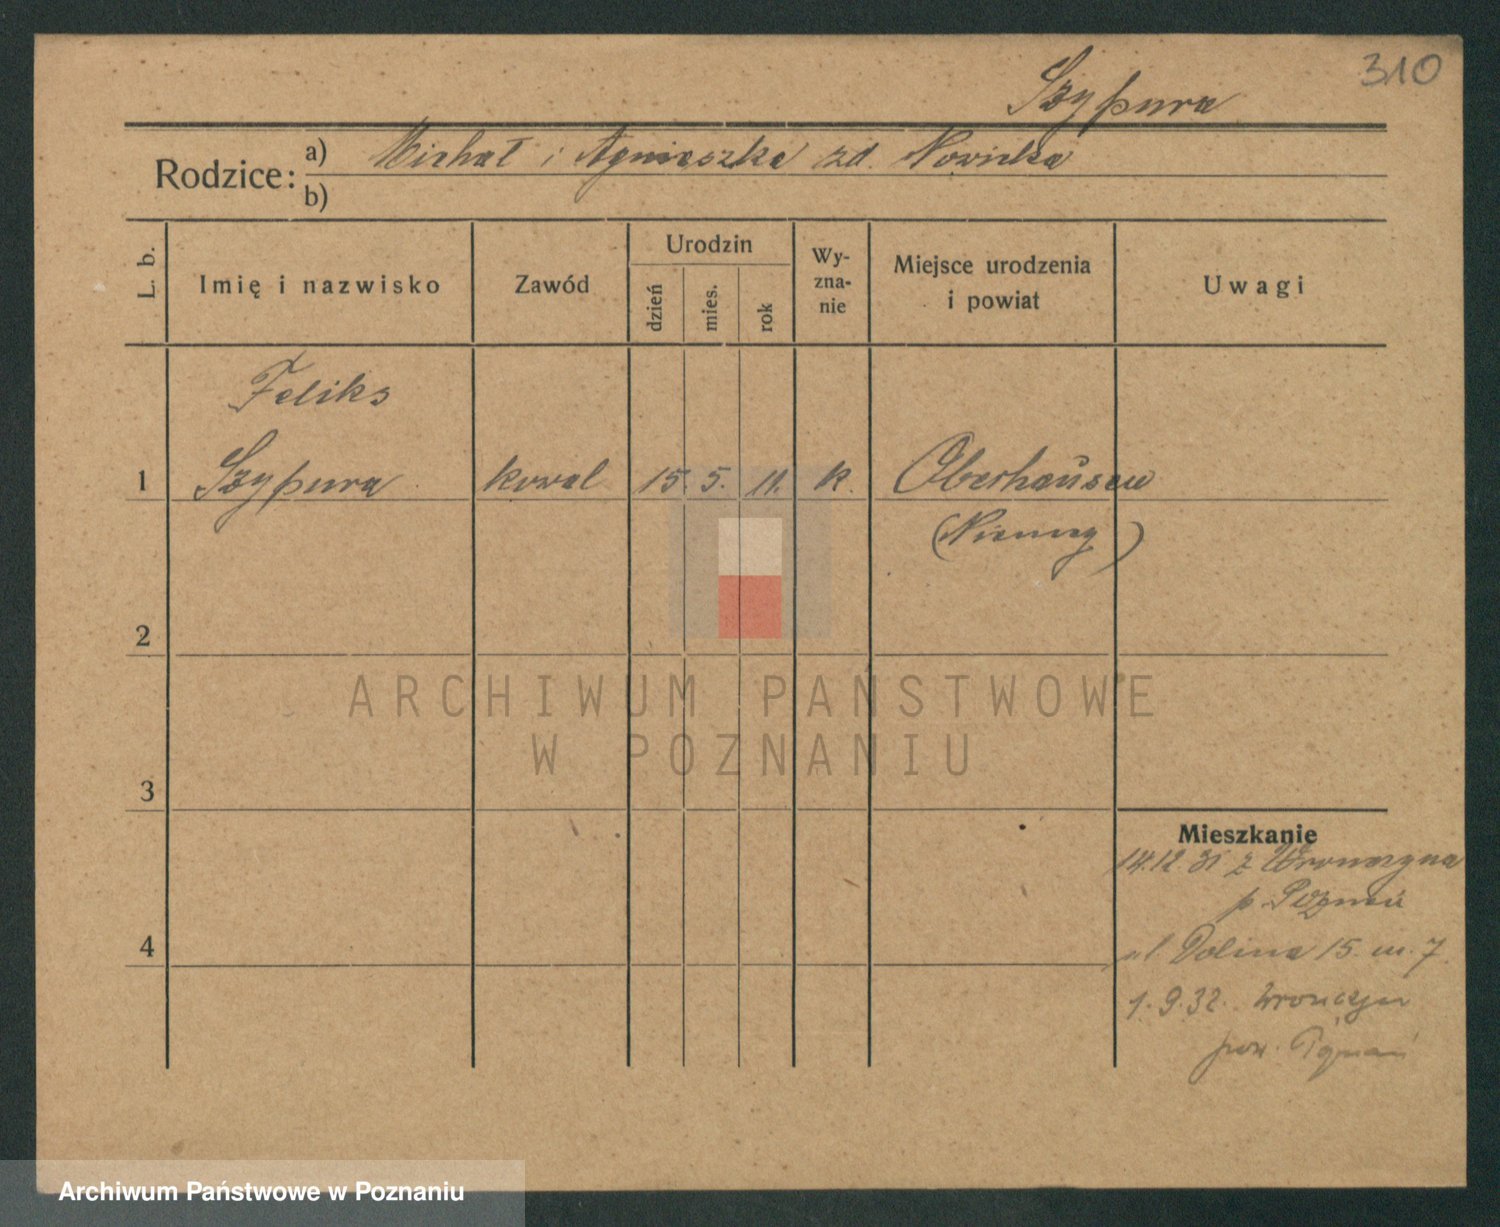 310
Szypura
Rodzice:
a) Michał i Agnieszka zd. Nowicka
b)
L. b.
Imię i nazwisko
Zawód
Urodzin
dzień
mies.
rok
Wy-
zna-
nie
Miejsce urodzenia
i powiat
Uwagi
Feliks
1 Szypura kowal 15. 5. 11. k. Oberhausen
(Niemcy)
2
ARCHIWUM PAŃSTWOWE
W POZNANIU
3
Mieszkanie
14.12.31 z Wronczyna
p. Poznań
4
ul. Dolina 15. m. 7.
1.9.32. Wronczyn
pow. Poznań
Archiwum Państwowe w Poznaniu